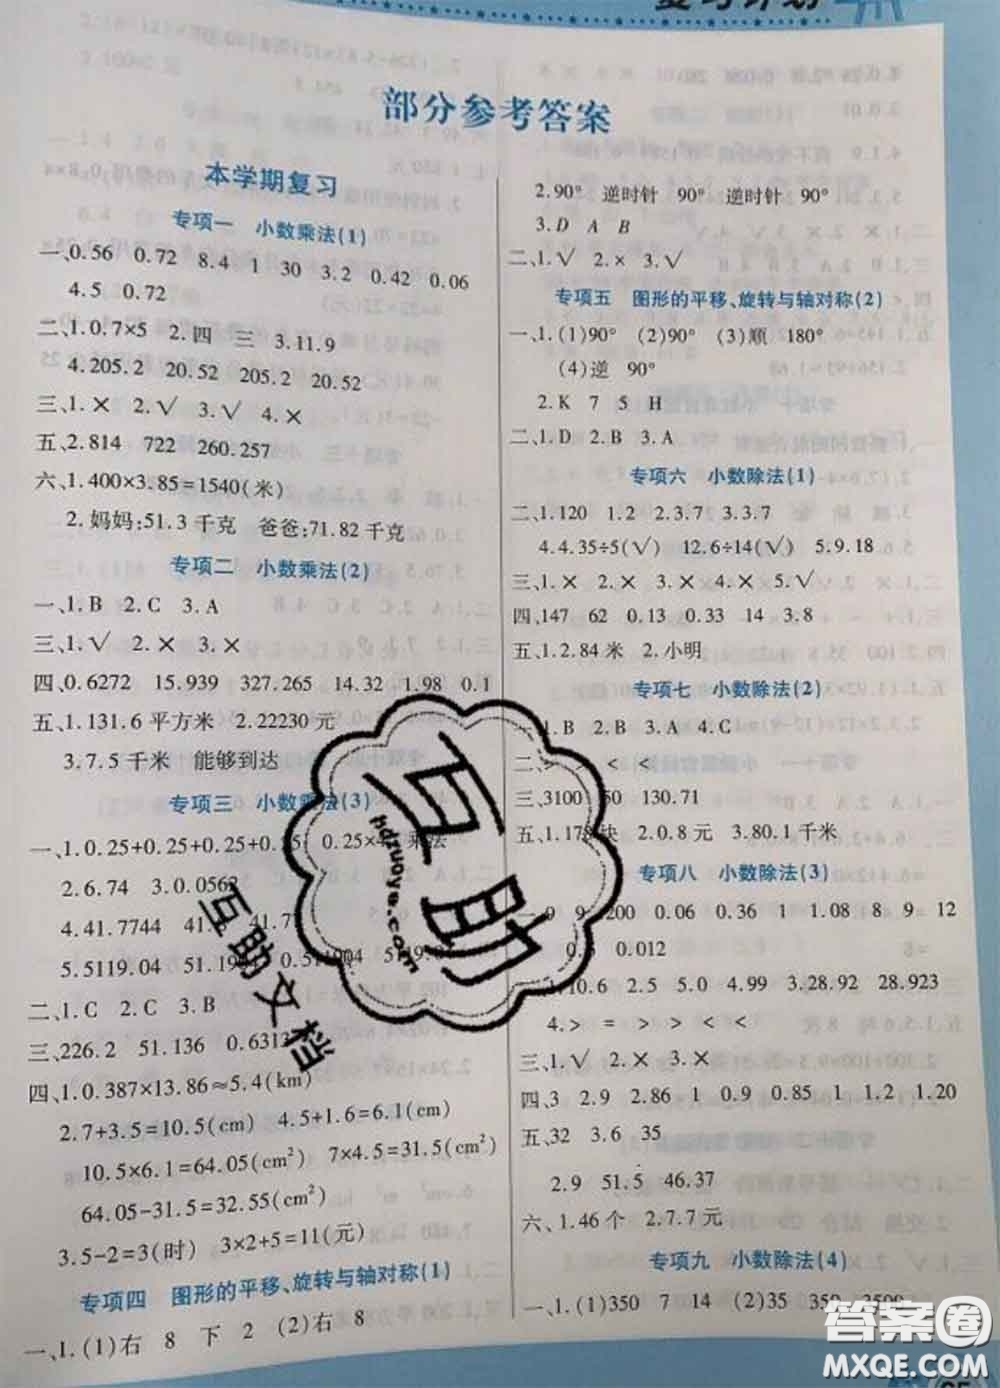 复习计划
部分参考答案
本学期复习
专项一 小数乘法(1)
一、0.56 0.72 8.4 1 30 3.2 0.42 0.06
4.5 0.72
二、1.0.7×5 2.四 三 3.11.9
4.205.2 20.52 205.2 20.52
三、1.× 2.√ 3.√ 4.×
五、2.814 722 260.257
六、1.400×3.85=1540(米)
2.妈妈:51.3千克 爸爸:71.82千克
专项二 小数乘法(2)
一、1.B 2.C 3.A
三、1.√ 2.× 3.×
四、0.6272 15.939 327.265 14.32 1.98 0.1
五、1.131.6平方米 2.22230元
3.7.5千米 能够到达
专项三 小数乘法(3)
一、1.0.25+0.25+0.25+0.25 0.25×4 乘法
2.6.74 3.0.0562
4.41.7744 41.7
5.5119.04 51.1904 0.511904
二、1.C 2.C 3.B
三、226.2 51.136 0.6312
四、1.0.387×13.86≈5.4(km)
2.7+3.5=10.5(cm) 4.5+1.6=6.1(cm)
10.5×6.1=64.05(cm²) 7×4.5=31.5(cm²)
64.05-31.5=32.55(cm²)
3.5-2=3(时) 3×2+5=11(元)
专项四 图形的平移、旋转与轴对称(1)
一、1.(1)右 8 下 2 (2)右 8
2.90° 逆时针 90° 逆时针 90°
3.D A B
二、1.√ 2.× 3.√
专项五 图形的平移、旋转与轴对称(2)
一、1.(1)90° (2)90° (3)顺 180°
(4)逆 90°
2.K 7 5 H
二、1.D 2.B 3.A
专项六 小数除法(1)
二、1.120 1.2 2.3.7 3.3.7
4.4.35÷5(√) 12.6÷14(√) 5.9.18
三、1.× 2.× 3.× 4.× 5.√
四、147 62 0.13 0.33 14 3.8
五、1.2.84米 2.小明
专项七 小数除法(2)
一、1.B 2.B 3.A 4.C
二、> > < <
三、3100 50 130.71
五、1.178块 2.0.8元 3.80.1千米
专项八 小数除法(3)
一、9 9 200 0.06 0.36 1 1.08 8 9 12
0.012
1.10.6 2.5 5.0 4.99 3.28.92 28.923
4.> = > > < <
三、1.√ 2.× 3.×
四、3 2.9 2.86 1 0.9 0.85 1 1.2 1.20
五、32 3.6 35
2.9 51.5 46.37
六、1.46个 2.7.7元
专项九 小数除法(4)
一、1.(1)350 7 14 (2)35 350 3500
互助
hdzuoye.com
互助文档
答案圈
MXQE.COM